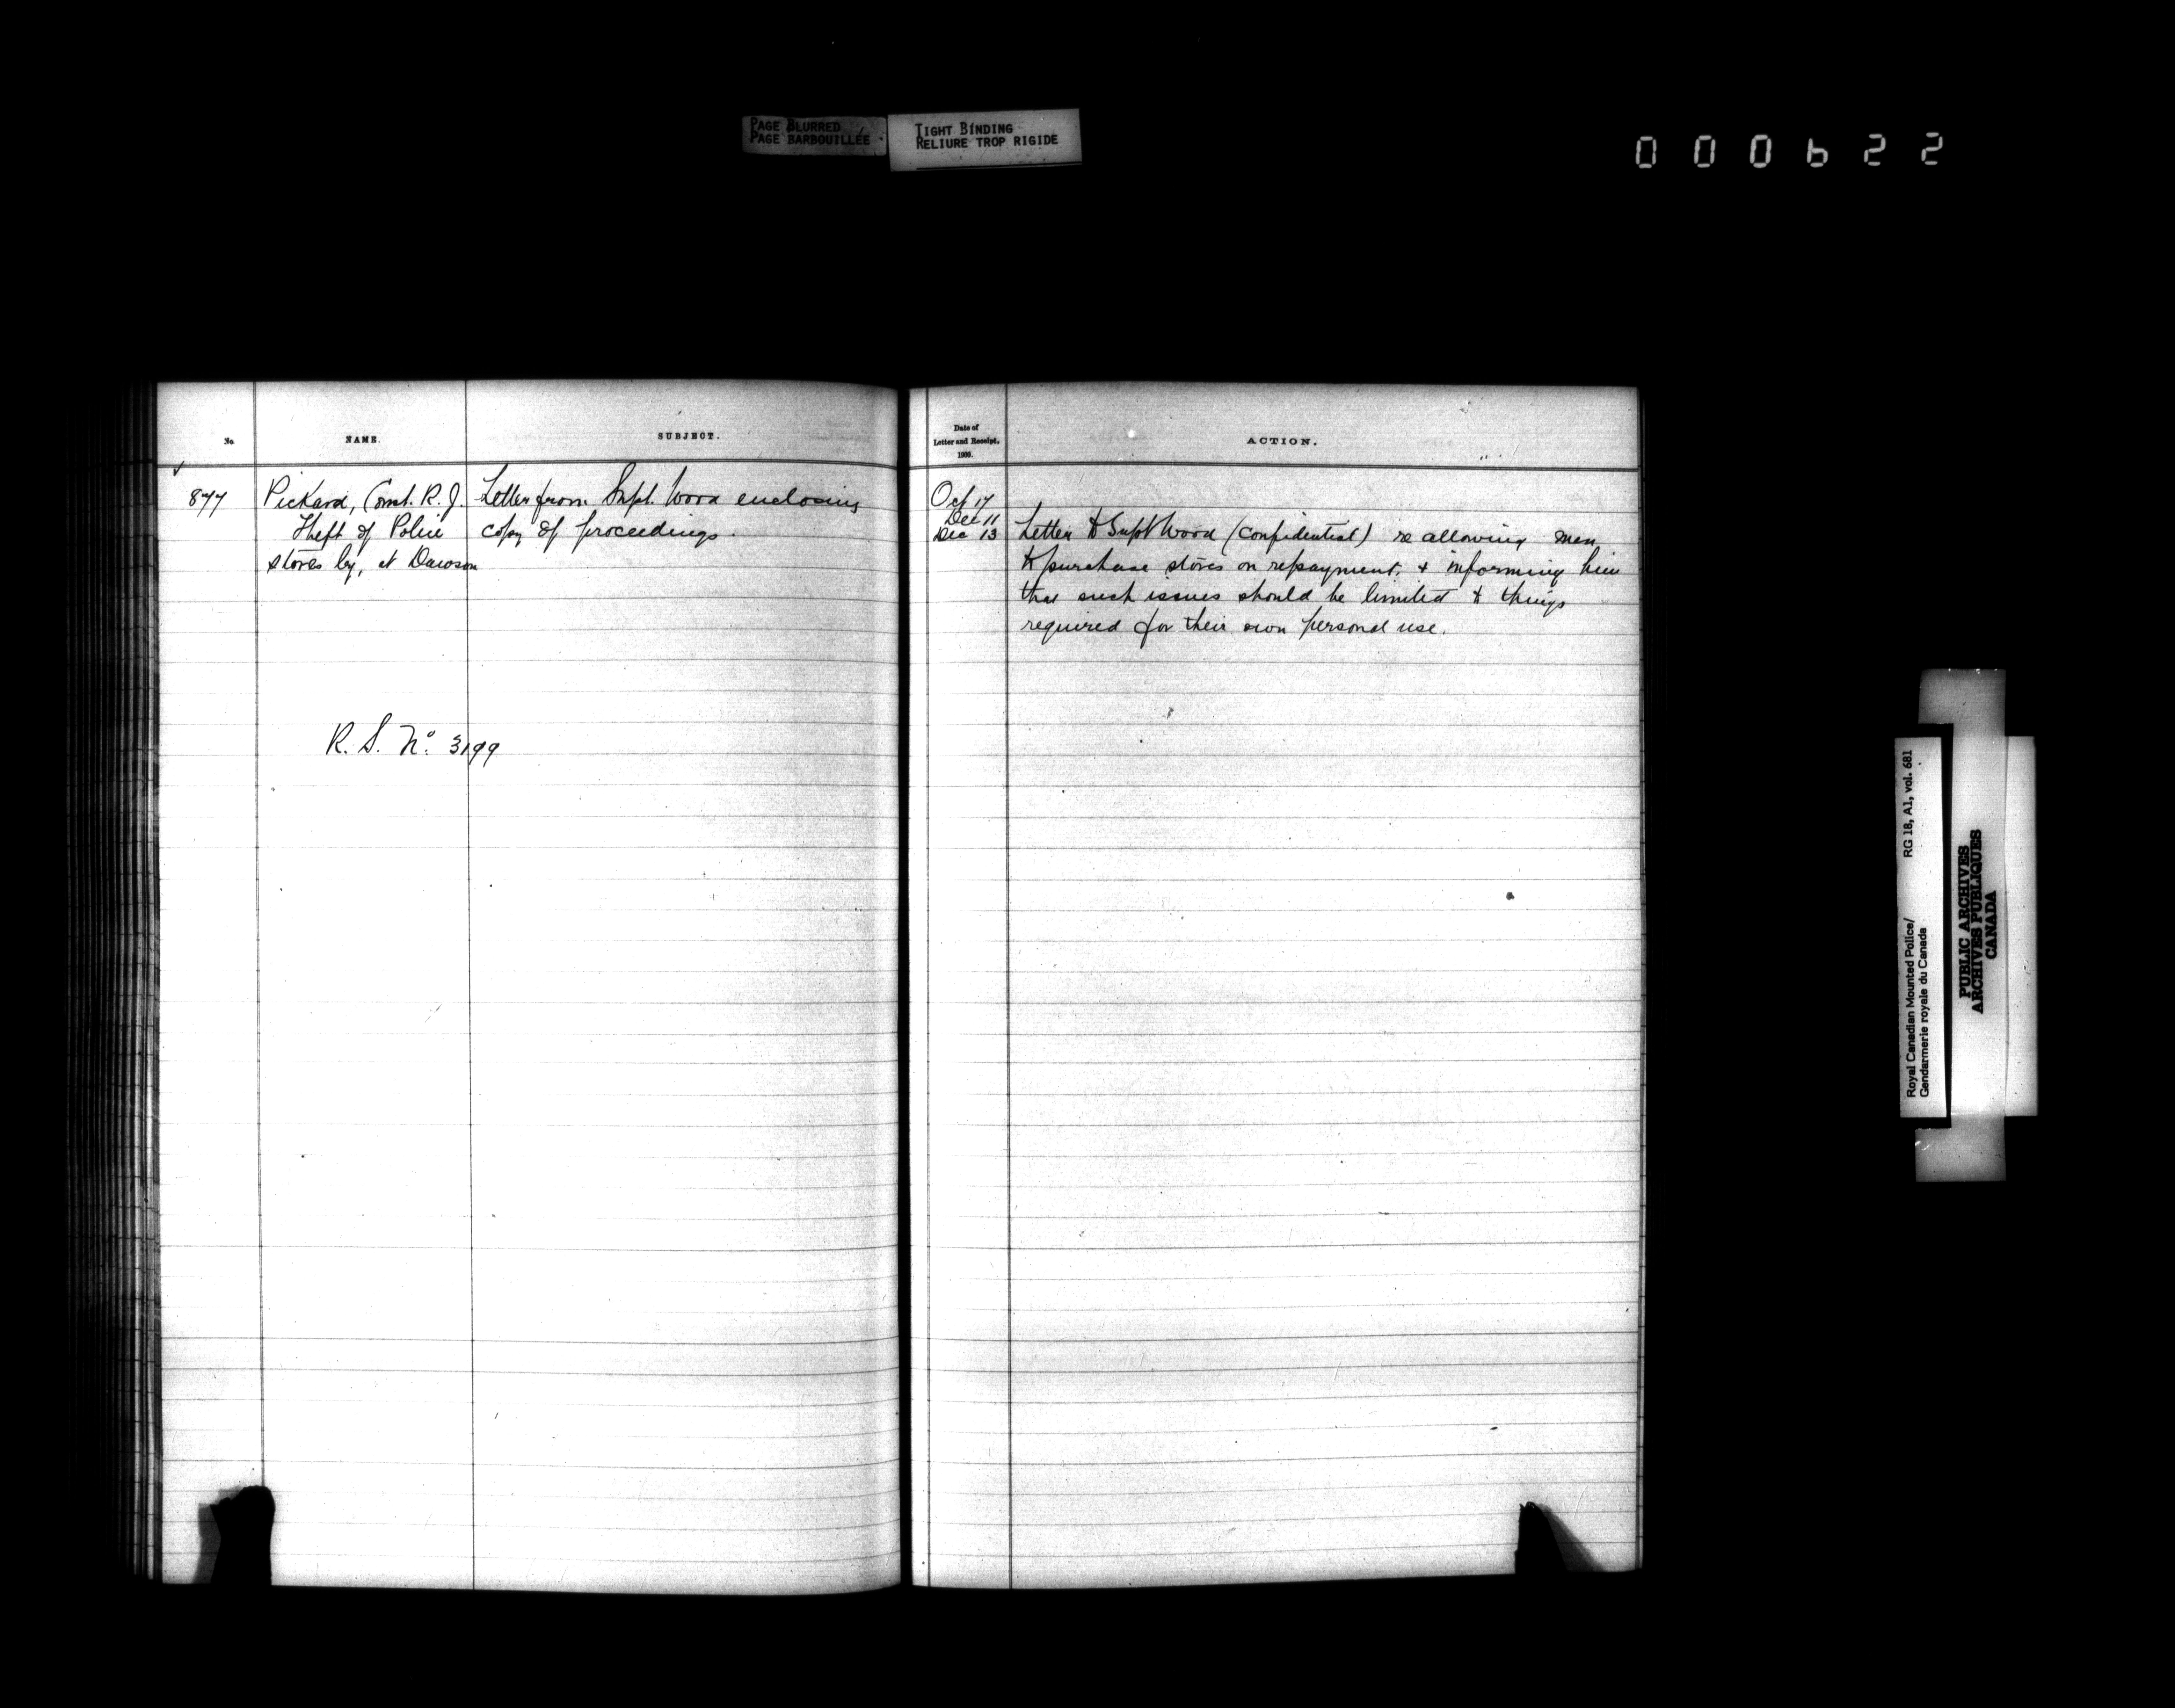 PAGE BLURRED
PAGE BARBOUILLÉE
TIGHT BINDING
RELIURE TROP RIGIDE
000622
No.
NAME.
SUBJECT.
Date of
Letter and Receipt,
1900.
ACTION.
877
Pickard, Const. R. J.
Theft of Police
stores by, at Dawson
Letter from Supt. Wood enclosing
copy of proceedings.
R. S. No. 3199
Oct 17
Dec 11
Dec 13
Letter to Supt Wood (confidential) re allowing men
to purchase stores on repayment, & informing him
that such issues should be limited to things
required for their own personal use.
Royal Canadian Mounted Police/ RG 18, A1, vol. 681
Gendarmerie royale du Canada
PUBLIC ARCHIVES
ARCHIVES PUBLIQUES
CANADA